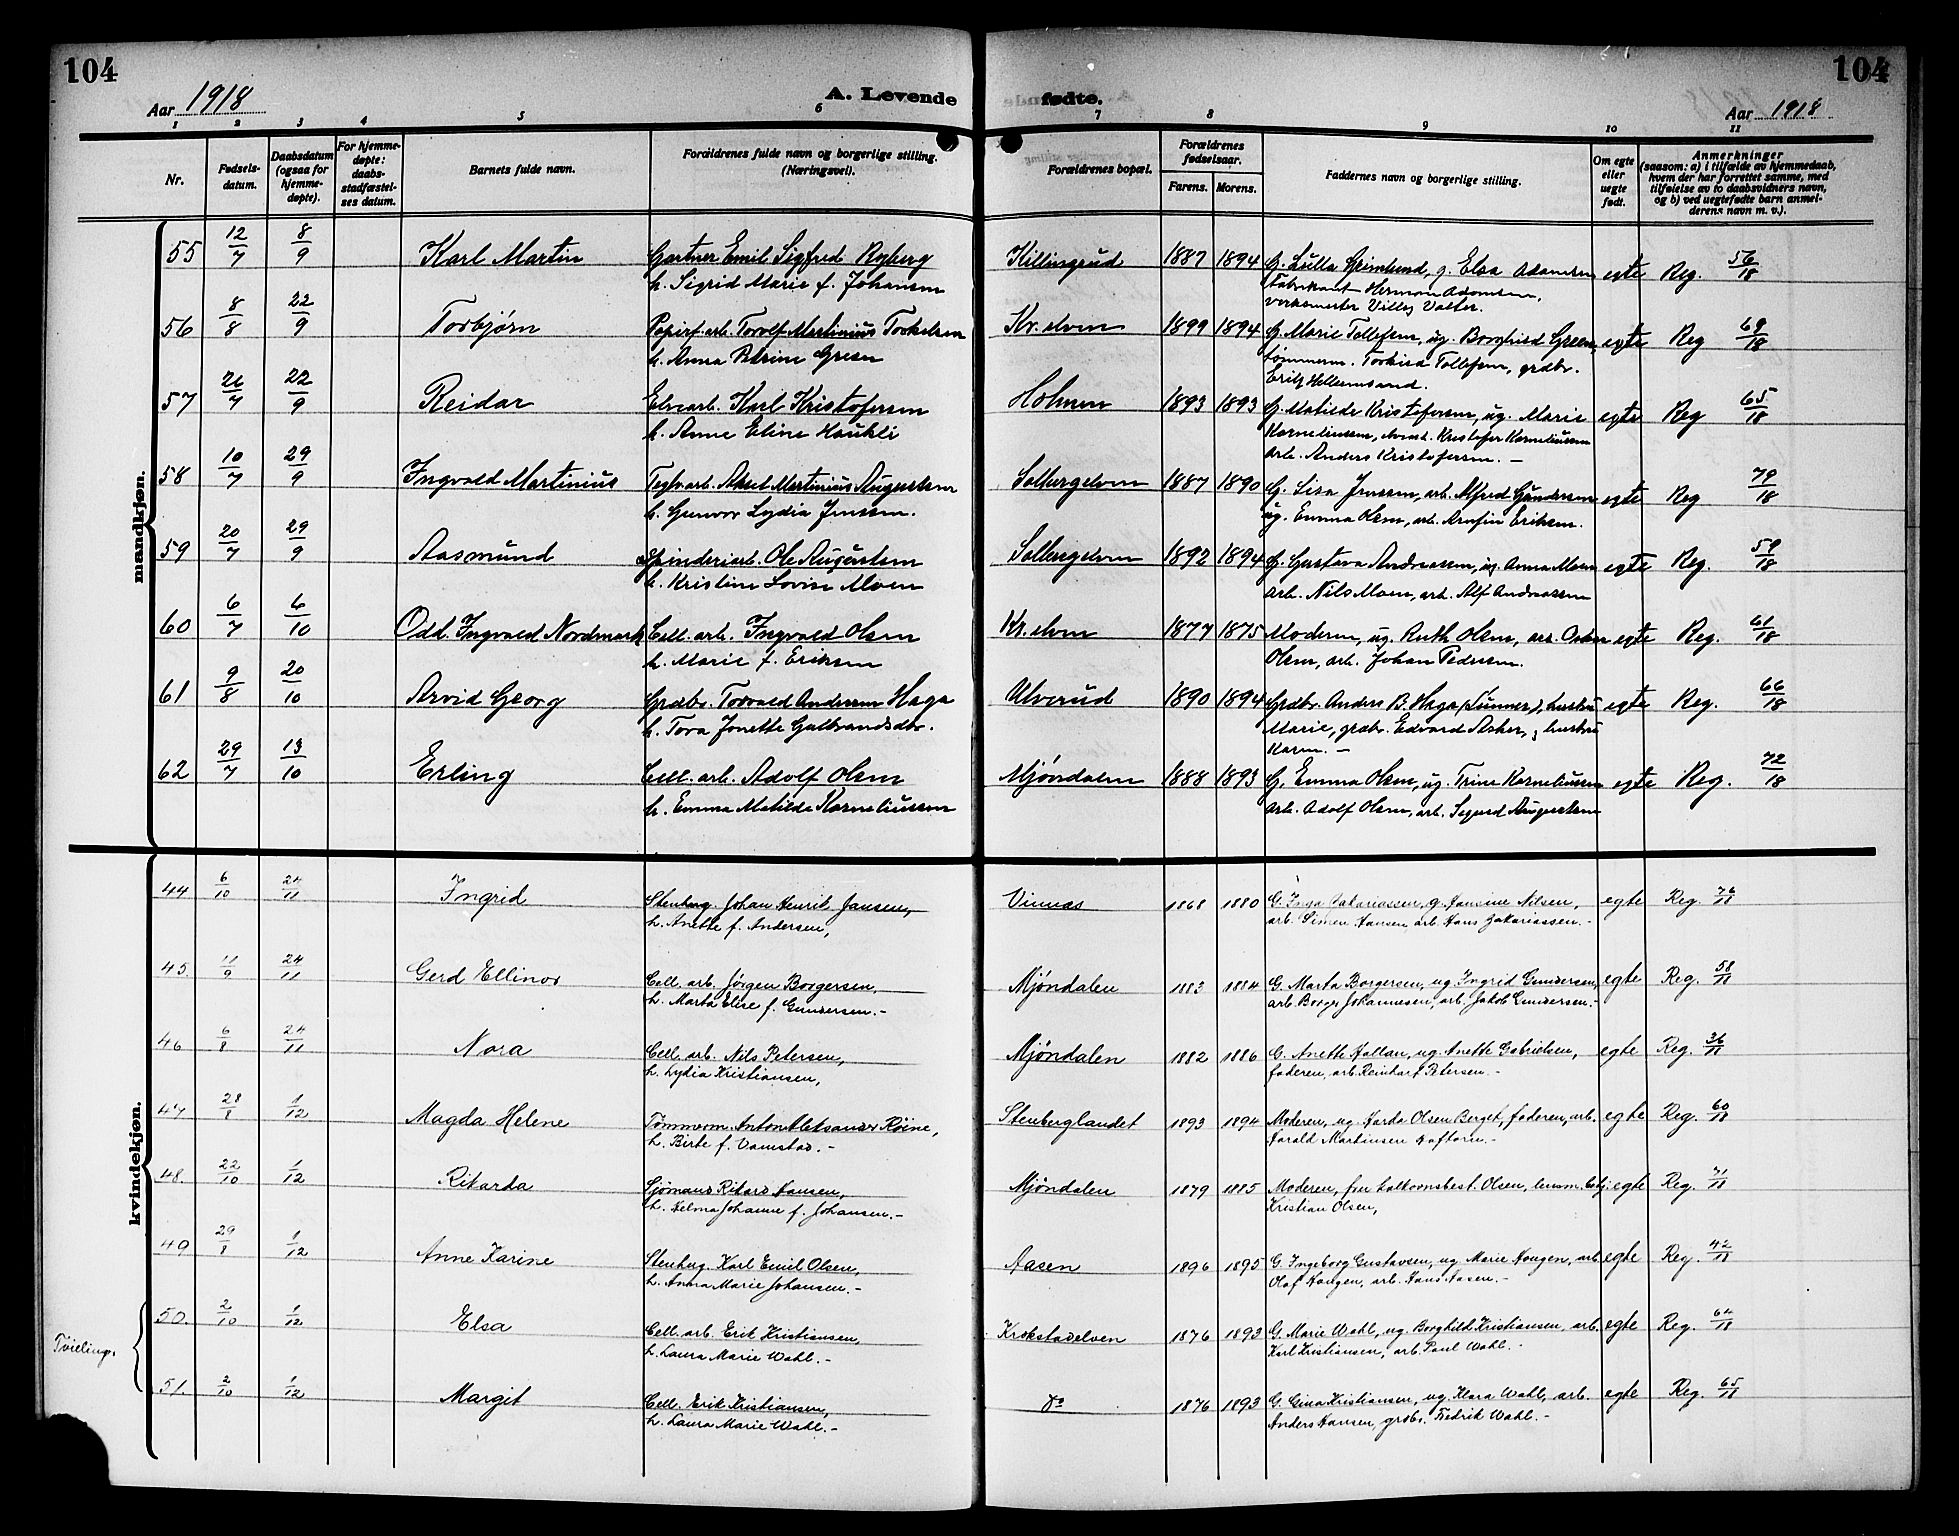 104
104
Aar 1918
A. Levende fødte.
Aar 1918
1 2 3 4 5 6 7 8 9 10 11
Nr.
Fødsels-datum.
Daabsdatum (ogsaa for hjemme-døpte).
For hjemme-døpte: daabs-stadfæstel-ses datum.
Barnets fulde navn.
Forældrenes fulde navn og borgerlige stilling. (Næringsvei).
Forældrenes bopæl.
Forældrenes fødselsaar.
Farens. Morens.
Faddernes navn og borgerlige stilling.
Om egte eller uegte født.
Anmerkninger
(saasom: a) i tilfælde av hjemmedaab, hvem der har forrettet samme, med tilføielse av to daabsvidners navn, og b) ved uegtefødte barn anmel-derens navn m. v.).
mandkjøn.
55 12/7 8/9 Karl Martin Gartner Emil Sigfred Ryberg Killingrud 1887 1894 G. Lulla Grimlund, g. Elsa Adamsen egte Reg. 56/18
h. Sigrid Marie f. Johansen Fabrikant Herman Adamsen,
verksmester Villy Valter.
56 8/8 22/9 Torbjørn Papirf. arb. Torolf Martinius Torkelsen Kr. elven 1899 1894 G. Marie Tollefsen, ug. Borghild Green, egte Reg 69/18
h. Anna Petrine Green tømmerm. Torkild Tollefsen, grdbr.
Erik Hellemsand.
57 26/7 22/9 Reidar Elvearb. Karl Kristofersen Holmen 1893 1893 G. Matilde Kristofersen, ug. Marie egte Reg 65/18
h. Anne Eline Haukli Korneliussen, Kristofer Korneliussen
arb. Anders Kristofersen. –
58 10/7 29/9 Ingvald Martinius Teglv. arb. Aksel Martinius Augustsen Solbergelven 1887 1890 G. Lisa Jenssen, arb. Alfred Gundersen egte Reg 79/18
h. Gunvor Lydia Jenssen. ug. Emma Olsen, arb. Arnfin Eriksen.
59 20/7 29/9 Aasmund Spinderiarb. Ole Augustsen Solbergelven 1892 1894 G. Gustava Andreassen, ug. Anna Moen egte Reg. 59/18
h. Kristine Lovise Moen arb. Nils Moen, arb. Alf Andreassen
60 6/7 6/10 Odd Ingvald Nordmark Cell. arb. Ingvald Olsen Kr. elven 1877 1875 Moderen, ug. Ruth Olsen, arb. Oskar egte Reg. 61/18
h. Marie f. Eriksen Olsen, arb. Johan Pedersen.
61 9/8 20/10 Arvid Georg Grdbr. Torvald Andersen Haga Ulverud 1890 1894 Grdbr. Anders B. Haga (Lunner), hustru egte Reg. 66/18
h. Tora Jonette Gulbrandsdtr. Marie, grdbr. Edvard Asker, hustru
Karen. –
62 29/7 13/10 Erling Cell. arb. Adolf Olsen Mjøndalen 1888 1893 G. Emma Olsen, ug. Trine Korneliussen egte Reg. 72/18
h. Emma Matilde Korneliussen arb. Adolf Olsen, arb. Sigurd Augustsen
kvindekjøn.
44 6/10 24/11 Ingrid Stenhug. Johan Henrik Jansen, Vinnæs 1868 1880 G. Inga Zakariassen, g. Hansine Nilsen, egte Reg. 76/18
h. Anette f. Andersen, arb. Simen Hansen, arb. Hans Zakariassen. –
45. 11/9 24/11 Gerd Ellinor Cell. arb. Jørgen Borgersen, Mjøndalen 1883 1884 G. Marta Borgersen, ug. Ingrid Gundersen, egte Reg. 58/18
h. Marta Elise f. Gundersen. – arb. Borger Johannesen, arb. Jakob Gundersen. –
46 6/8 24/11 Nora Cell. arb. Nils Petersen, Mjøndalen 1882 1886 G. Anette Hallan, ug. Anette Gabrielsen, egte Reg. 36/18
h. Lydia Kristiansen, faderen, arb. Reinhart Petersen. –
47 28/8 1/12 Magda Helene Tømmerm. Anton Aleksander Røine, Stenberglandet 1893 1894 Moderen, ug. Harda Olsen Berget, faderen, arb. egte Reg. 60/18
h. Birte f. Vamstad. – Harald Martinsen Haftorn. –
48. 22/10 1/12 Rikarda Sjømand Rikard Hansen, Mjøndalen 1879 1885 Moderen, fru Olsen, egte Reg. 71/18
h. Helma Johanne f. Johansen. – Kristian Olsen,
49 29/8 1/12 Anne Karine Stenhug. Karl Emil Olsen, Aasen 1896 1895 G. Ingeborg Gustavsen, ug Marie Haugen, arb. egte Reg. 42/18
h. Anna Marie Johansen. – Olaf Haugen, arb. Hans Aasen. –
Tvieling.
50. 2/10 1/12 Elsa Cell. arb. Erik Kristiansen, Krokstadelven 1876 1893 G. Marie Wahl, ug. Borghild Kristiansen, arb. egte Reg. 64/18
h. Laura Marie Wahl. – Karl Kristiansen, arb. Paul Wahl. –
51. 2/10 1/12 Margit Cell. Erik Kristiansen, do 1876 1893 G. Gina Kristiansen, ug. Klara Wahl, arb. egte Reg. 65/18
h. Laura Marie Wahl. – Anders Hansen, grdbr. Fredrik Wahl. –